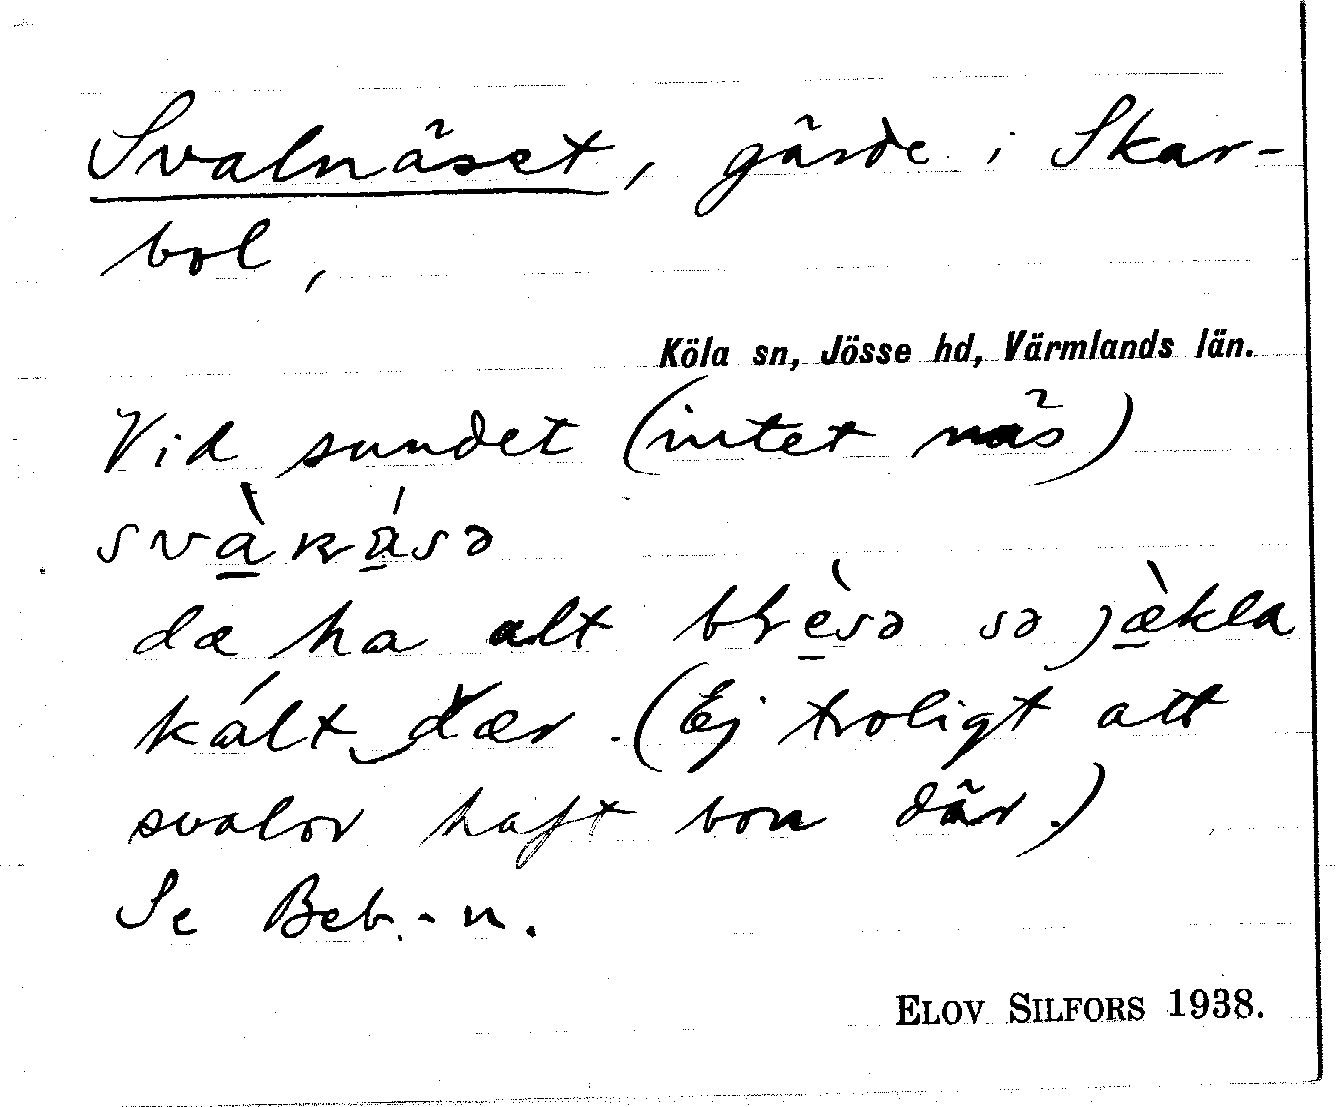 Svalnäset, gärde i Skar-
bol,
Köla sn, Jösse hd, Värmlands län.
Vid sundet (intet näs)
svàkrásə
dæ ha alt blèsə sə jæ̀kla
kált dær. (Ej troligt att
svalor haft bon där.)
Se Beb.-n.
ELOV SILFORS 1938.